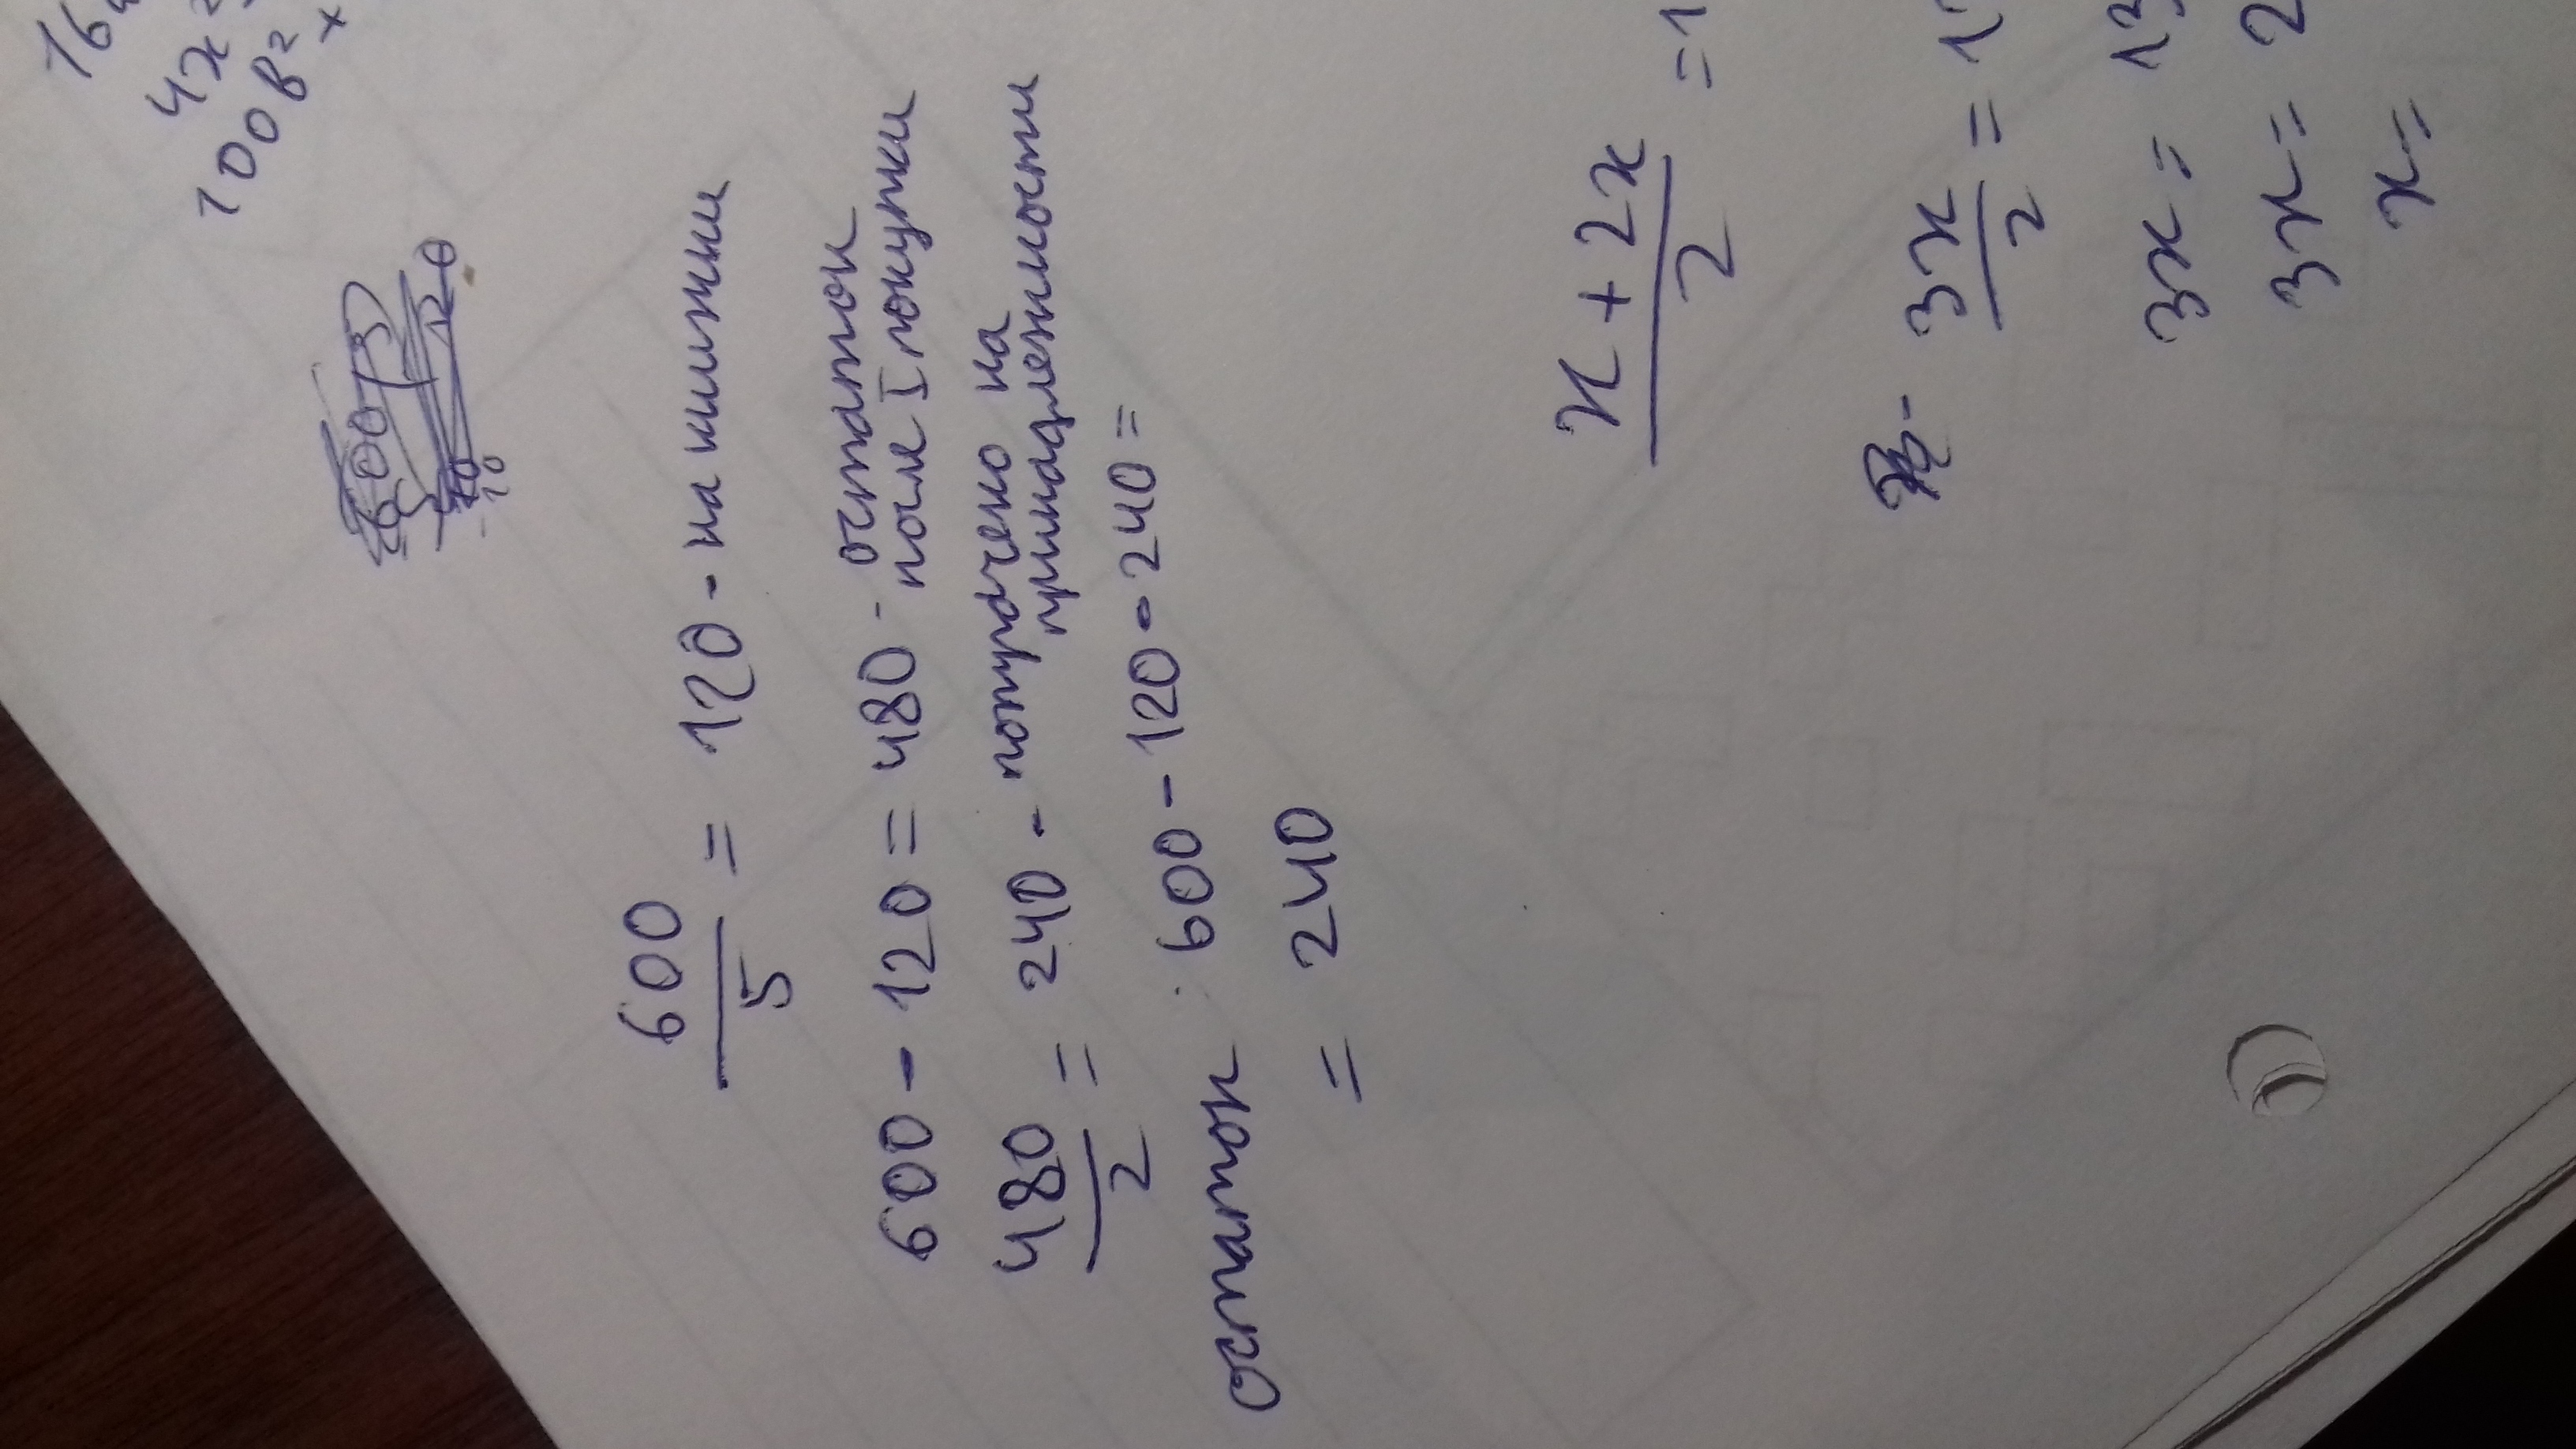 4x =
100 в =
600/5 = 120 - на книжки
600 - 120 = 480 - остаток
после I покупки
480/2 = 240 - потрачено на
принадлежности
остаток: 600 - 120 - 240 =
= 240
x + 2x/2 = 1
3x/2 = 1
3x = 13
3x = 2
x =